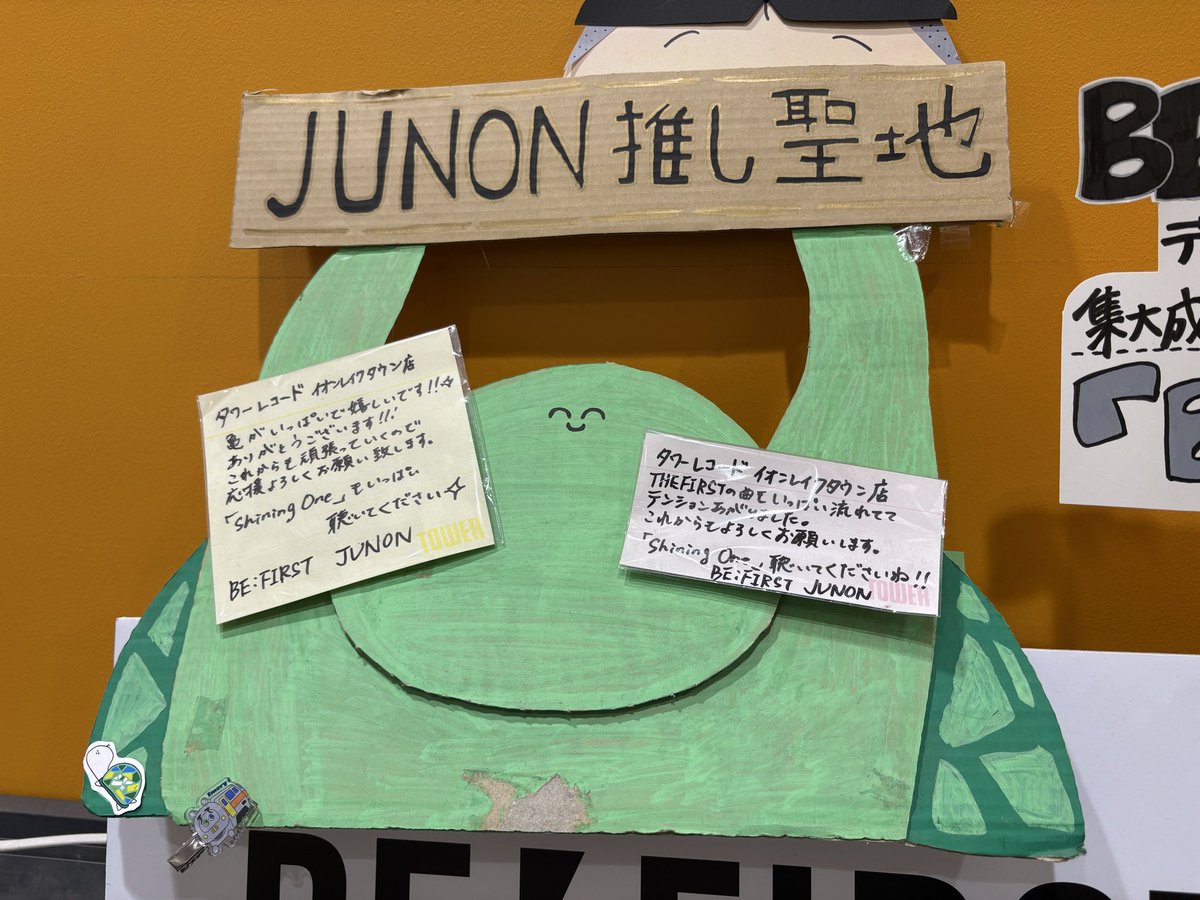 JUNON推し聖地
タワーレコード イオンレイクタウン店
亀がいっぱいで嬉しいです!!✧
ありがとうございます!!!
これからも頑張っていくので
応援よろしくお願い致します。
「Shining One」もいっぱい
聴いてください✧
BE:FIRST JUNON
TOWER
タワーレコード イオンレイクタウン店
THEFIRSTの曲もいっぱい流れてて
テンションあがりました。
これからもよろしくお願いします。
「Shining One」聴いてくださいね!!
BE:FIRST JUNON
TOWER
集大成